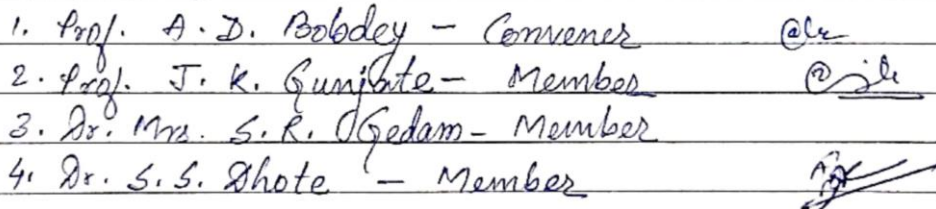 1. Prof. A. D. Bobdey – Convener
2. Prof. J. K. Gunjate – Member
3. Dr. Mrs. S. R. Gedam – Member
4. Dr. S. S. Dhote – Member